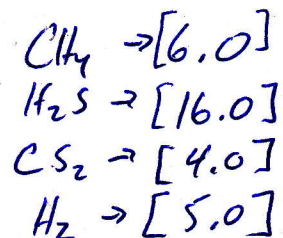 CH₄ → [6.0]
H₂S → [16.0]
CS₂ → [4.0]
H₂ → [5.0]